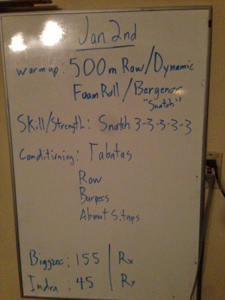 Jan 2nd
warmup: 500m Row/Dynamic
Foam Roll/Bergener
"Snatch"
Skill/Strength: Snatch 3-3-3-3-3
Conditioning: Tabatas
Row
Burpees
About S.tups
: 155 | Rx
Indra : 45 | Rx